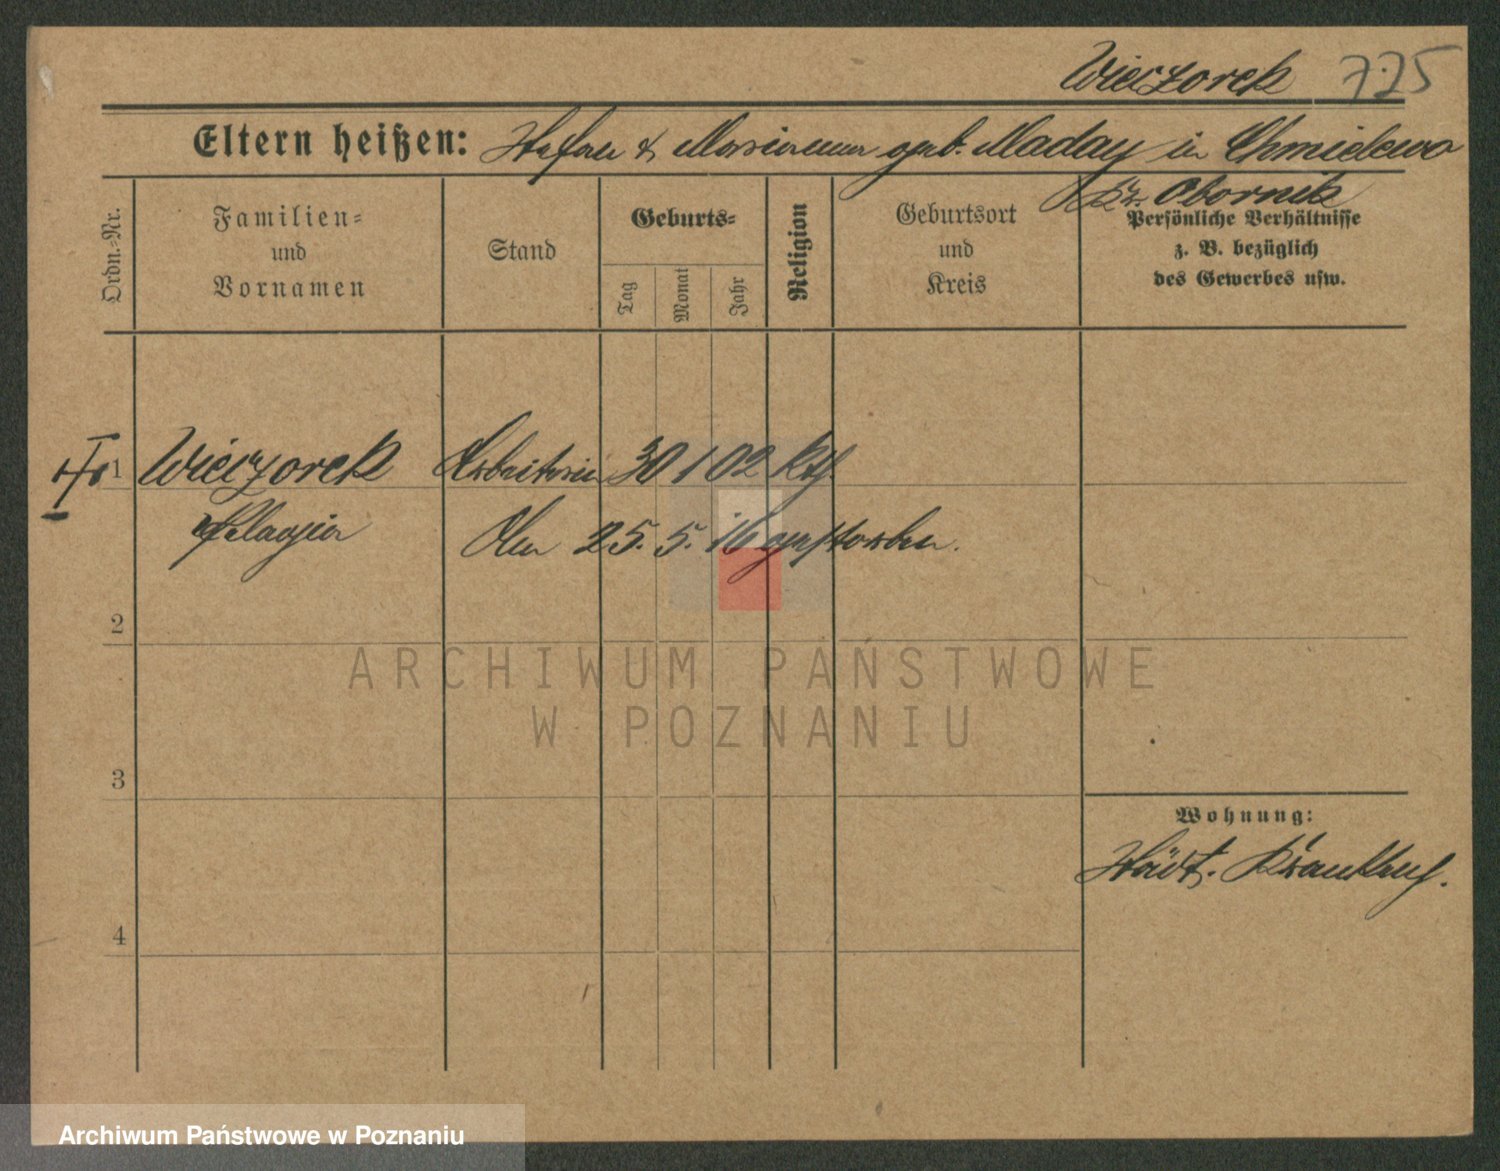 Wieczorek 725
Eltern heißen: Stefan & Marianna geb. Maday in Chmielewo
Kr. Obornik
Ordn.-Nr.
Familien-
und
Vornamen
Stand
Geburts-
Tag
Monat
Jahr
Religion
Geburtsort
und
Kreis
Persönliche Verhältnisse
z. B. bezüglich
des Gewerbes usw.
1 Wieczorek Arbeiterin 30 1 02 kth.
Pelagia Am 25. 5. 16 gestorben.
2
ARCHIWUM PAŃSTWOWE
W POZNANIU
3
Wohnung:
Städt. Krankhs.
4
Archiwum Państwowe w Poznaniu